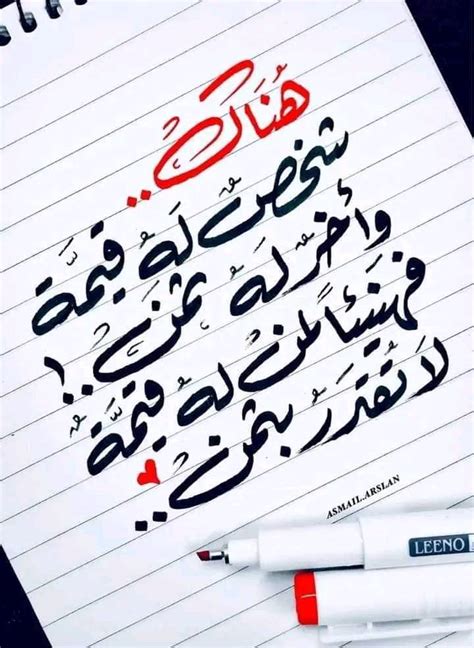 هُنَاكَ..
شخصٌ لَهُ قيمَّة
وأخرُ لَهُ ثمنَ..!
فهنيئاً لمنْ لهُ قيمَّةٌ
لاَ تُقدَرُ بثمنْ..
ASMAIL.ARSLAN
LEENO